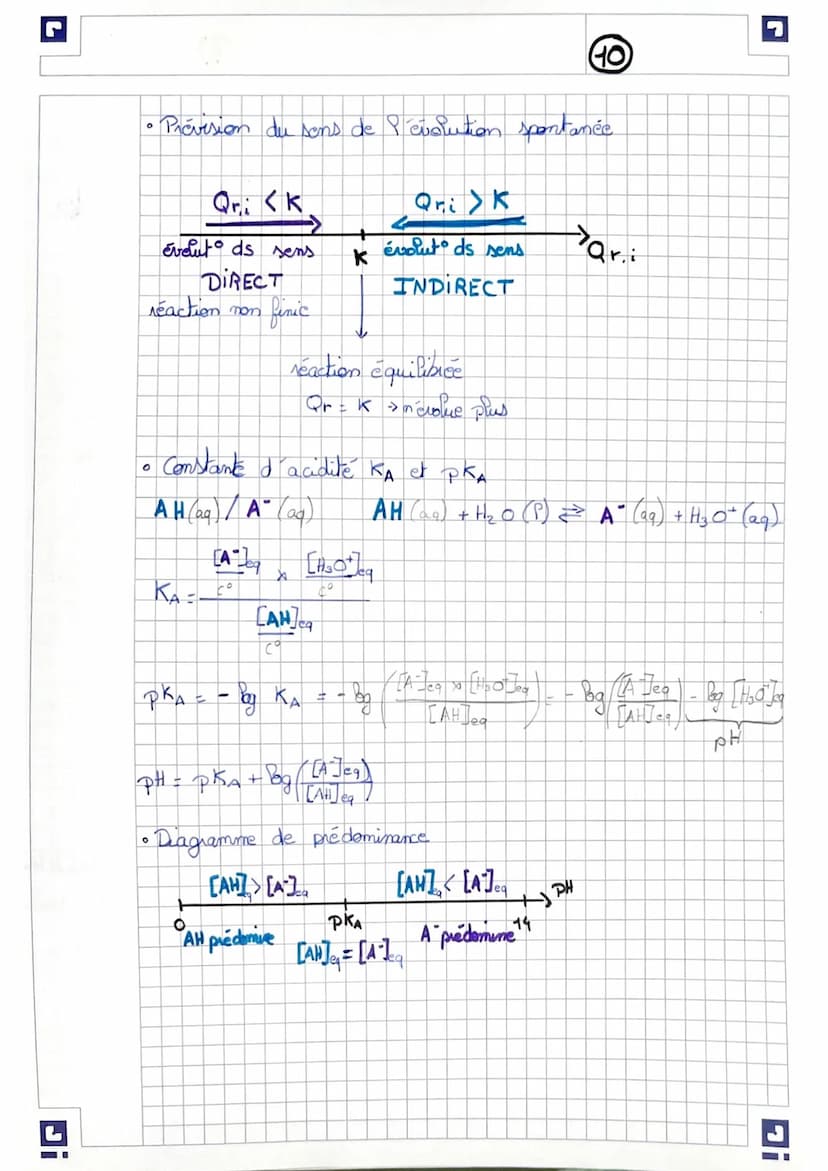 10
• Prévision du sens de l'évolution spontanée
Qr,i < K Qr,i > K
évolut° ds sens K évolut° ds sens Qr,i
DIRECT INDIRECT
réaction non finie
réaction équilibrée
Qr = K → n'évolue plus
• Constante d'acidité KA et pKA
AH(aq) / A⁻(aq) AH(aq) + H₂O(l) ⇌ A⁻(aq) + H₃O⁺(aq)
KA = ([A⁻]eq/c° × [H₃O⁺]eq/c°) / ([AH]eq/c°)
pKA = - log KA = - log([A⁻]eq × [H₃O⁺]eq / [AH]eq) = - log([A⁻]eq / [AH]eq) - log [H₃O⁺]eq
pH
pH = pKA + log([A⁻]eq / [AH]eq)
• Diagramme de prédominance
[AH]eq > [A⁻]eq [AH]eq < [A⁻]eq pH
0 pKA 14
AH prédomine [AH]eq = [A⁻]eq A⁻ prédomine